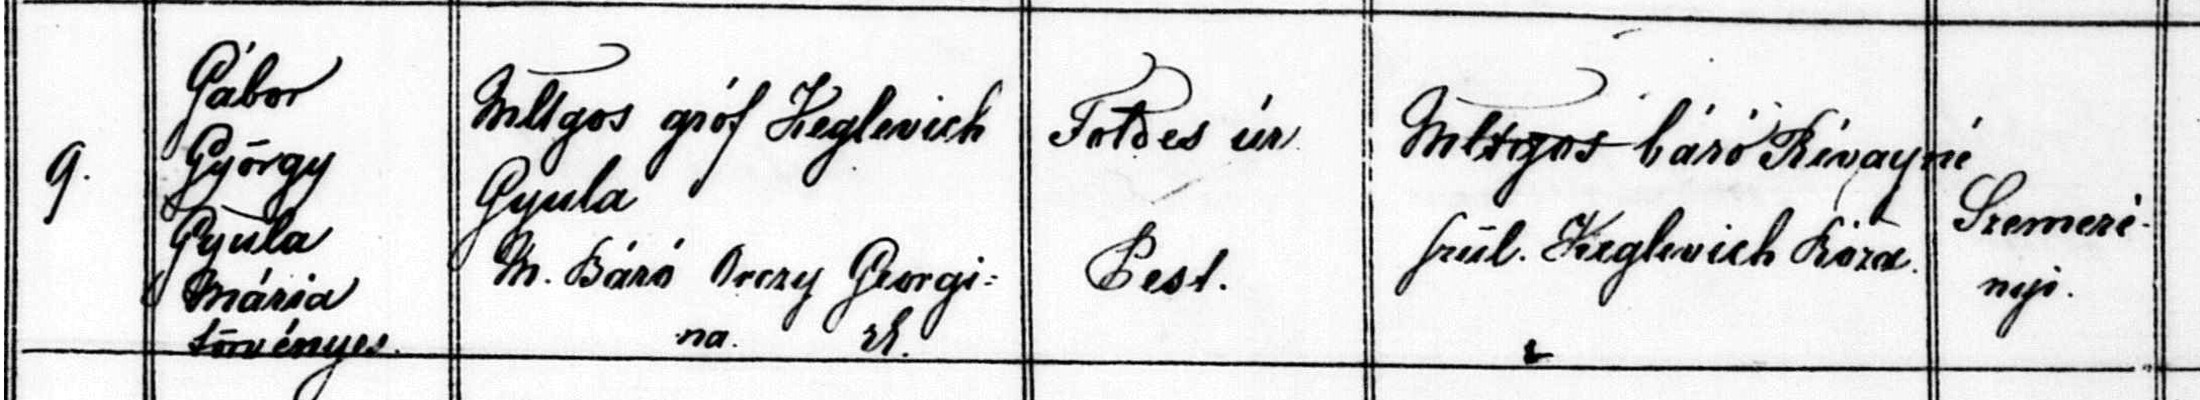 9.
Gábor
György
Gyula
Mária
törvényes.
Mltgos gróf Keglevich
Gyula
M. Báró Orczy Georgi-
na. rk.
Földes úr
Pest.
Mltgos báró Révayné
szül. Keglevich Róza.
Szemeré-
nyi.